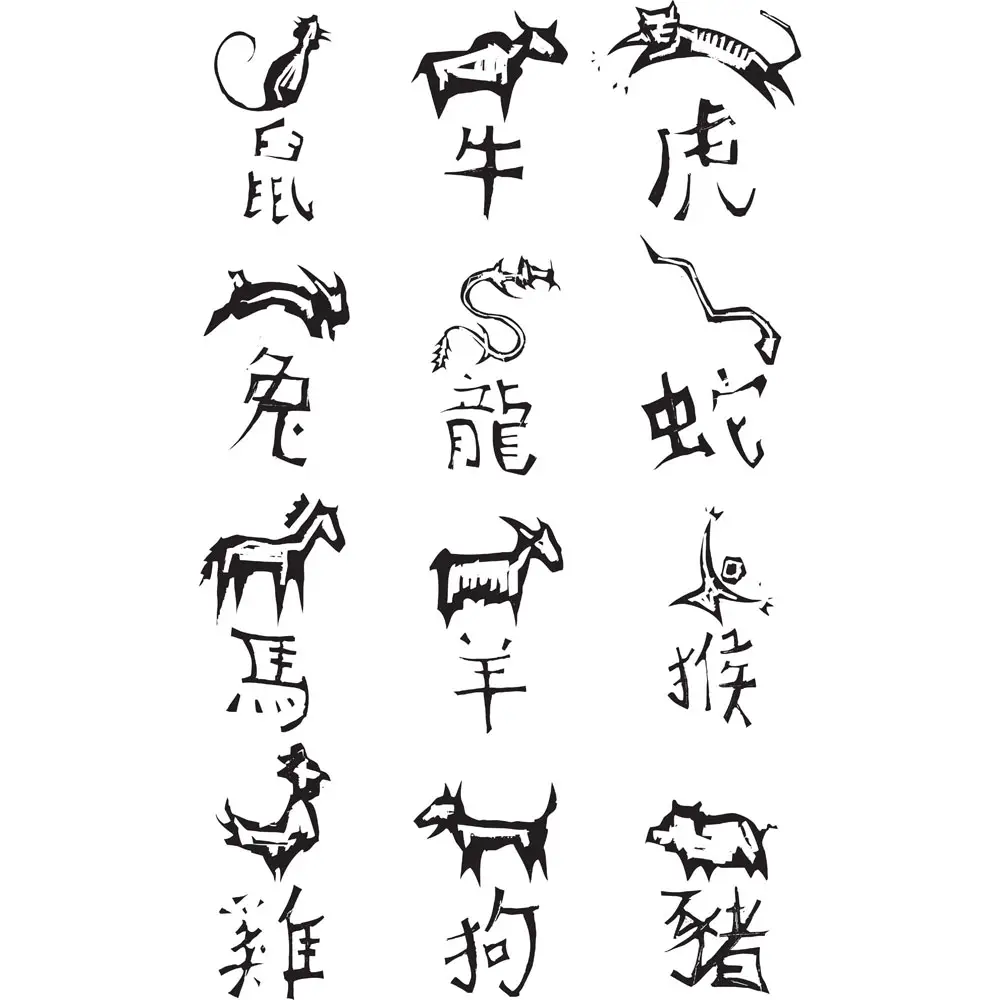 鼠 牛 虎
兔 龍 蛇
馬 羊 猴
雞 狗 豬